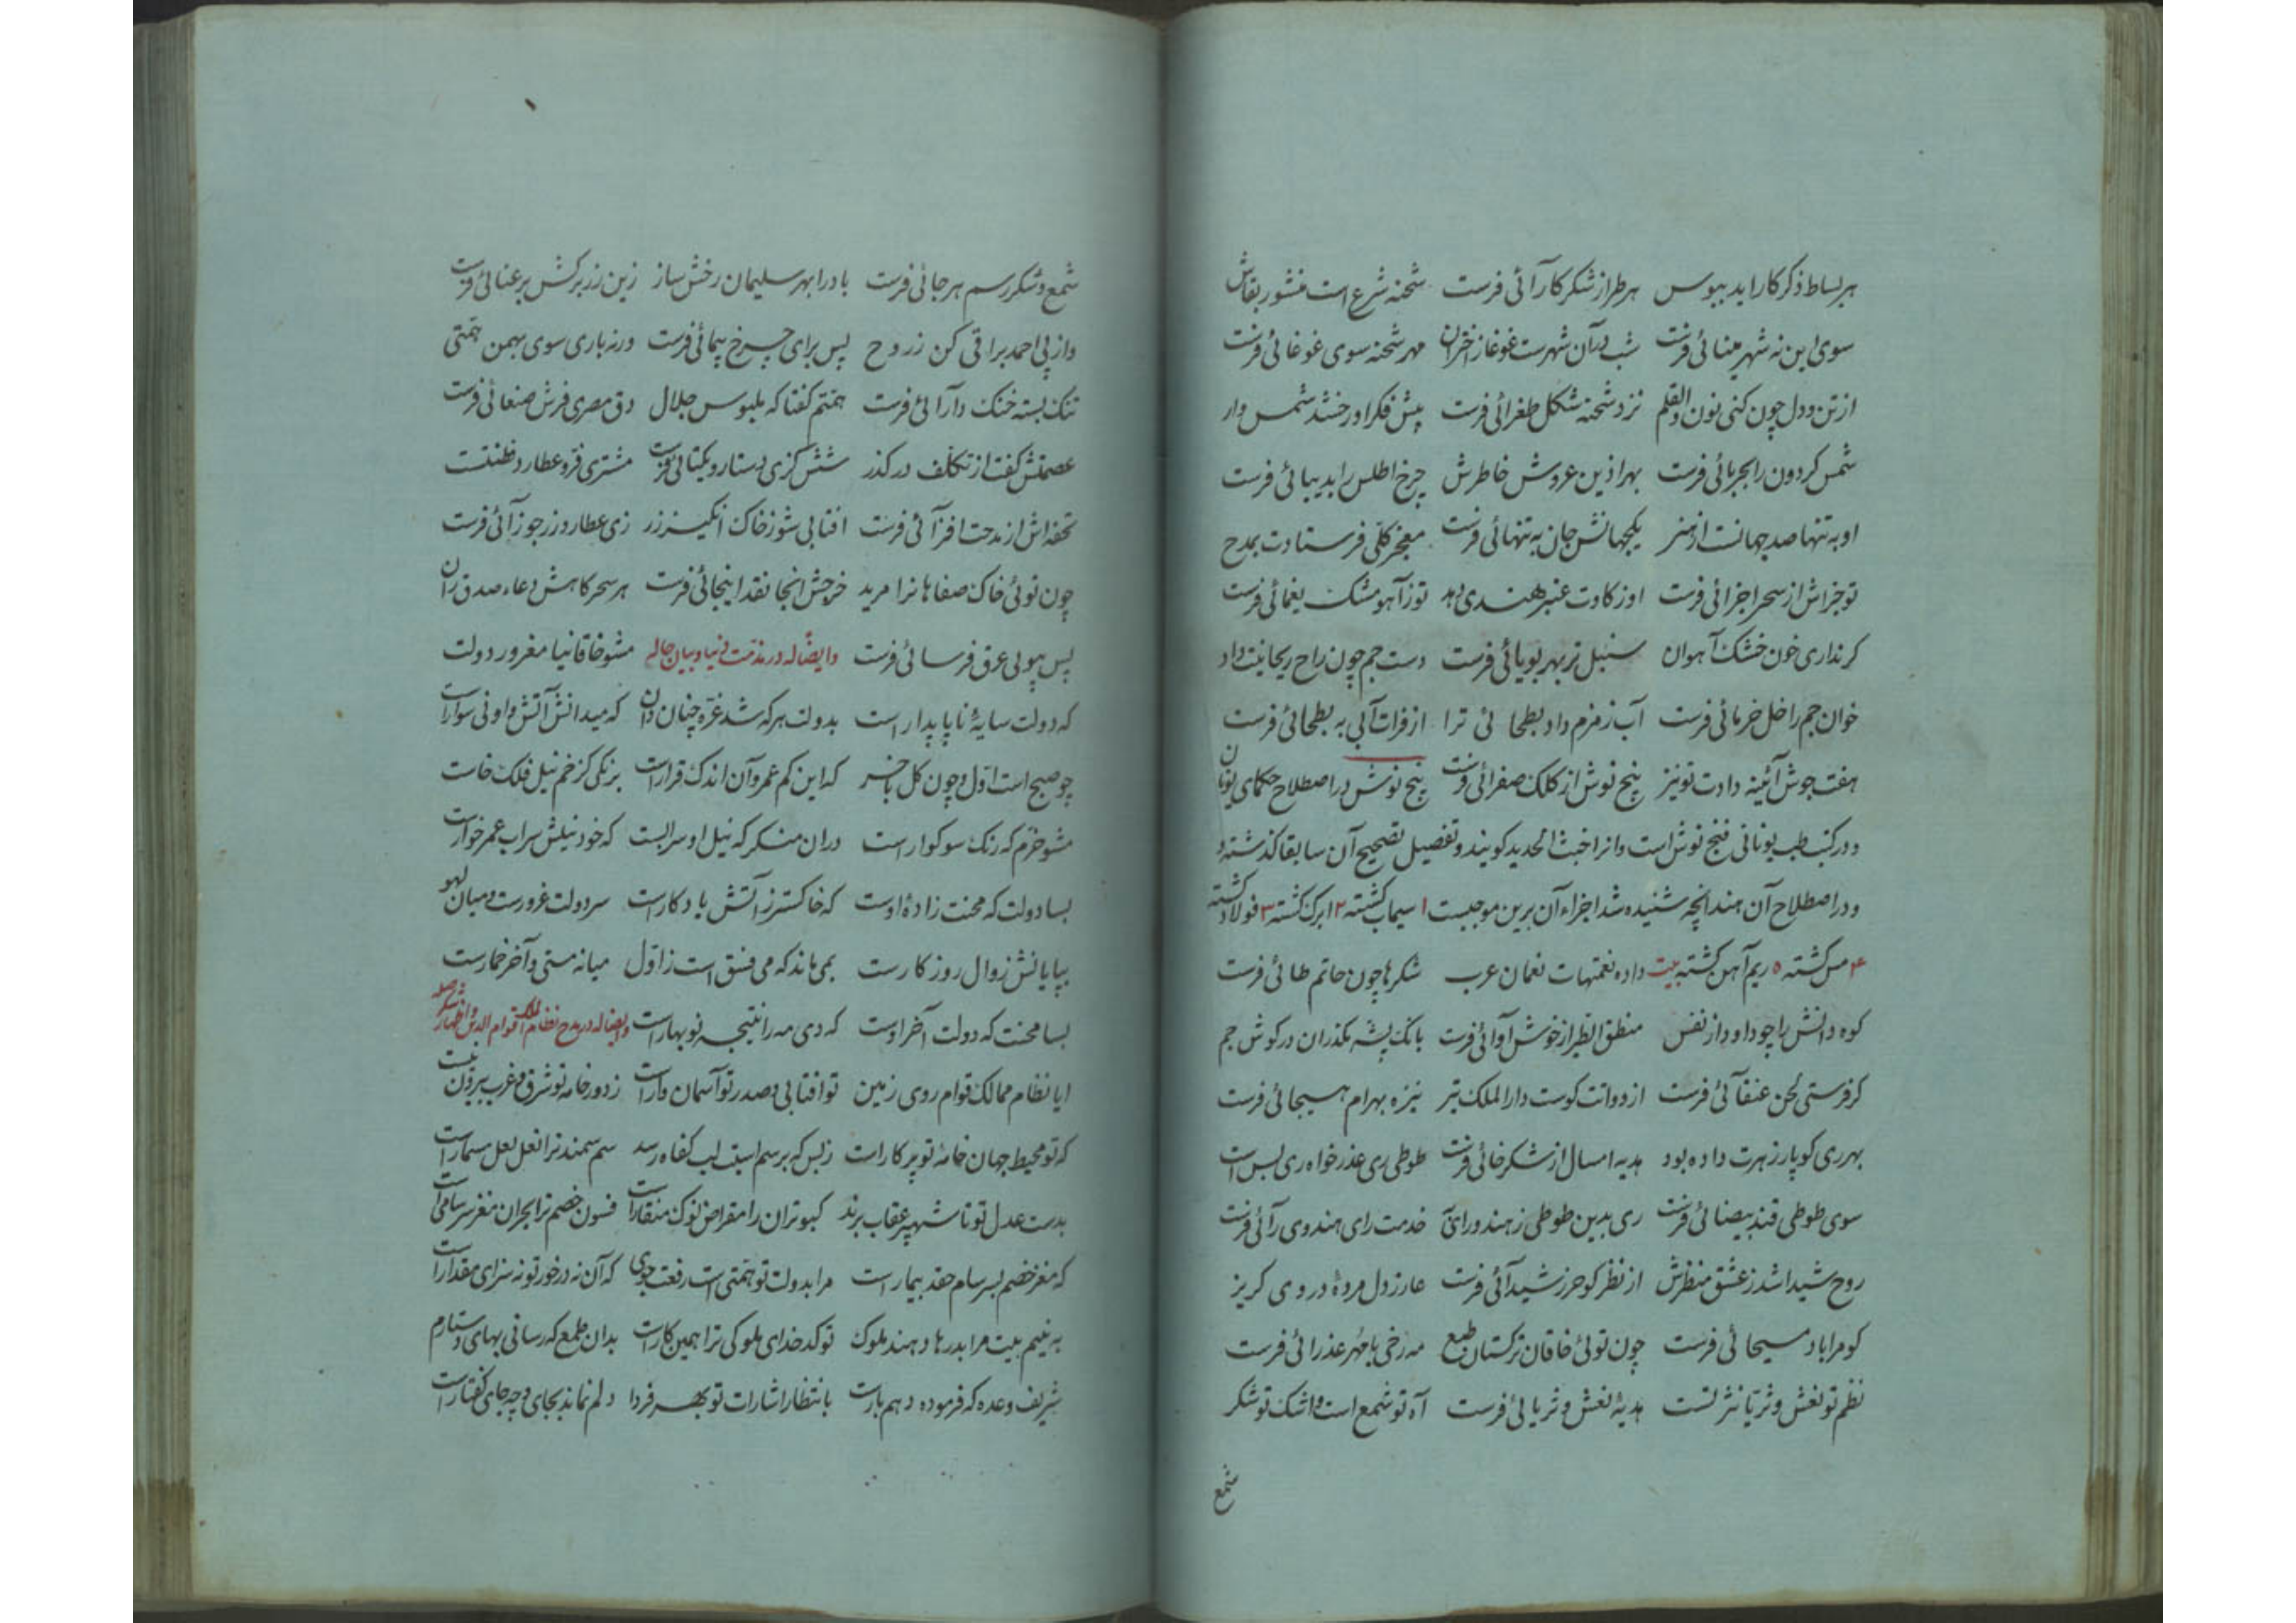 هر بساط ذکر کاراید ببوس هر طراز شکر کارآئی فرست شحنه شرع است منشور بقاش
سوی این نه شهر مینائی فرست شب در آن شهرست غوغا ز اختران مهر شحنه سوی غوغائی فرست
از تن و دل چون کنی نون والقلم نزد شحنه شکل طغرائی فرست پیش فکر او رخشند شمس وار
شمس کردون را بحربائی فرست بهر اذین عروس خاطرش چرخ اطلس را بدیبائی فرست
او به تنها صد جهانست از هنر یکجهانش جان به تنهائی فرست معجز کلی فرستادت بمدح
تو جزاش از سحر اجزائی فرست او ز کاوت عنبر هندی دهد تو ز آهو مشک یغمائی فرست
کر نداری خون خشک آهوان سنبل تر بهر بویائی فرست دست جم چون راح ریحانیت داد
خوان جم را خل خرمائی فرست آب زمزم داد بطحائی ترا از فرات آبی به بطحائی فرست
هفت جوش آئینه دادت تو نیز پنج نوش از کلک صفرائی فرست پنج نوش در اصطلاح حکمای یونان
و در کتب طب یونانی فنج نوش است و انرا خبث الحدید کویند و تفصیل تصحیح آن سابقا کذشته و
و در اصطلاح آن هند انچه شنیده شد اجزاء آن برین موجبست ۱ سیماب کشته ۲ ابرک کشته ۳ فولاد کشته
۴ مس کشته ۵ ریم آهن کشته بیت داده نعمتهات نعمان عرب شکرها چون حاتم طائی فرست
کوه دانش را چو داود از نفس منطق الطیر از خوش آوائی فرست بانک پشه مکذران در کوش جم
کر فرستی لحن عنقائی فرست از دواتت کوست دارالملک تیر نیزه بهرام هیجائی فرست
بهر ری کو پار زهرت داده بود هدیه امسال از شکر خائی فرست طوطی ری عذر خواه ری بس است
سوی طوطی قند بیضائی فرست ری بدین طوطی ز هند ورای خدمت رای هندوی رآئی فرست
روح شیدا شد ز عشق منظرش از نظر کو حرز شیدآئی فرست عارز دل مرده در وی کریز
کو مرا باد مسیحائی فرست چون توئی خاقان ترکستان طبع مه رخی با مهر عذرائی فرست
نظم تو نعش و ثریا نثر تست هدیهٔ نعش و ثریائی فرست آه تو شمع است و اشک تو شکر
شمع
شمع و شکر رسم هر جائی فرست باد را بهر سلیمان رخش ساز زین زر برکش برعنائی فرست
واز پی احمد براقی کن ز روح پس برای چرخ پیمائی فرست ورنه باری سوی بهمن همتی
تنک بسته خنک دارآئی فرست همتم کفتا که ملبوس جلال دق مصری فرش صنعائی فرست
عصمتش کفت از تکلف در کذر شش کزی دستار و یکتائی فرست مشتری فر و عطارد فطنتست
تحفه اش از مدحت افزآئی فرست افتابی شو ز خاک انکیز زر زی عطارد زر جوزآئی فرست
چون توئی خاک صفاهانرا مرید خرجش انجا نقد اینجائی فرست هر سحر کاهش دعاء صدق ران
پس ببوی عرق فرسائی فرست وایضا له در مذمت دنیا و بیان حاله مشو خاقانیا مغرور دولت
که دولت سایهٔ ناپایدار است بدولت هر که شد غره چنان دان که میدانش آتش و او نی سوارات
چو صبح است اول و چون کل باخر که این کم عمر و آن اندک قرارات برنکی کز خم نیل فلک خاست
مشو خرم که رنک سوکوار است دران منکر که نیل او سرابست که خود نیلش سراب عمر خوارات
بسا دولت که محنت زاده اوست که خاکستر ز آتش یادکارات سر دولت غرورست و میان لهو
بپایانش زوال روزکارست بمی ماند که می فسق است ز اول میانه مستی و آخر خمارست
بسا محنت که دولت آخر اوست که دی مه را نتیجه نو بهارات وایضا له در مدح نظام الملک قوام الدین و اظهار شکر صله
ایا نظام ممالک قوام روی زمین تو افتابی و صدر تو آسمان وارات ز دور خامه تو شرق و غرب بیرون نیست
که تو محیط جهان خامهٔ تو پرکارات ز بس که بر سم اسبت لب کفاه رسد سم سمند ترا نعل لعل مسمارات
بدست عدل تو تا شهپر عقاب برند کبوتران را مقراض نوک منقارات فسون خصم ترا بحران مغز سرسامی است
که مغز خصم بسرسام حقد بیمار است مرا بدولت تو همتی است رفعت جوی که آن نه در خور تو نه سزای مقدارات
به نیم بیت مرا بدرها دهند ملوک تو کدخدای ملوکی ترا همین کارات بدان طمع که رسانی بهای دستارم
شریف وعده که فرموده دهم بارت بانتظار اشارات تو بهر فردا دلم نماند بجای و چه جای کفتارات